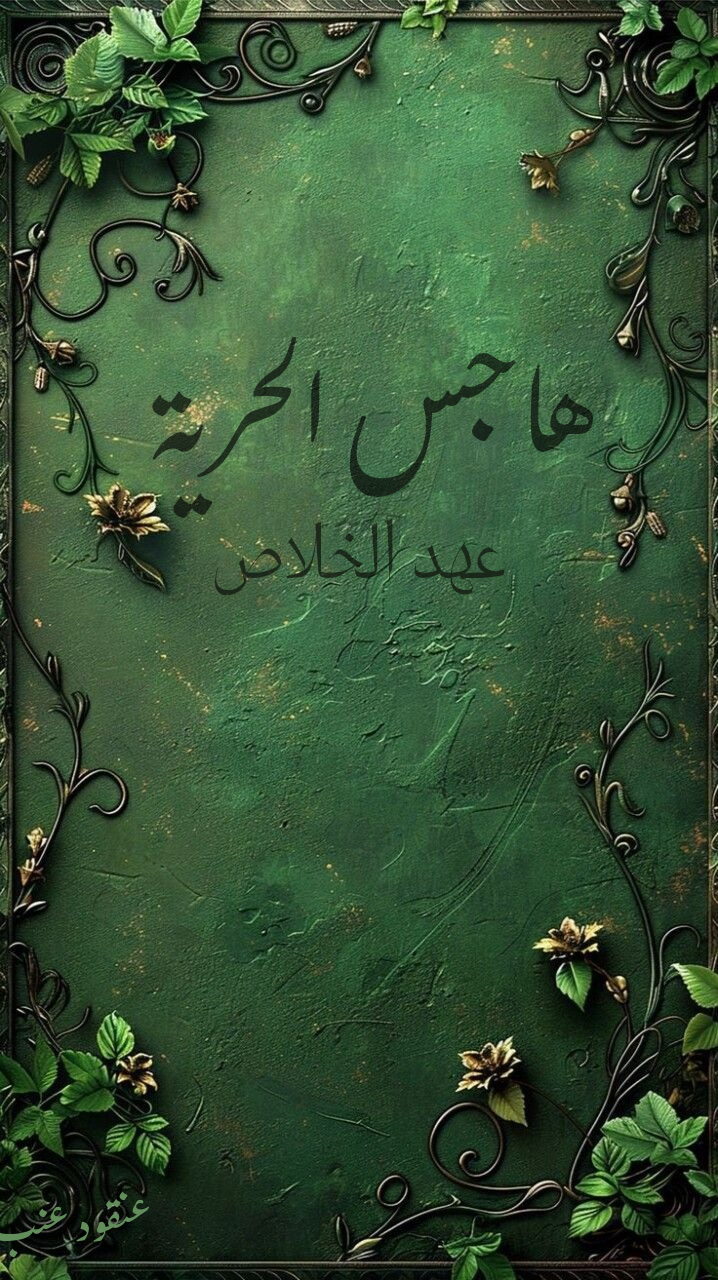 هاجس الحرية
عهد الخلاص
عنقود عنب